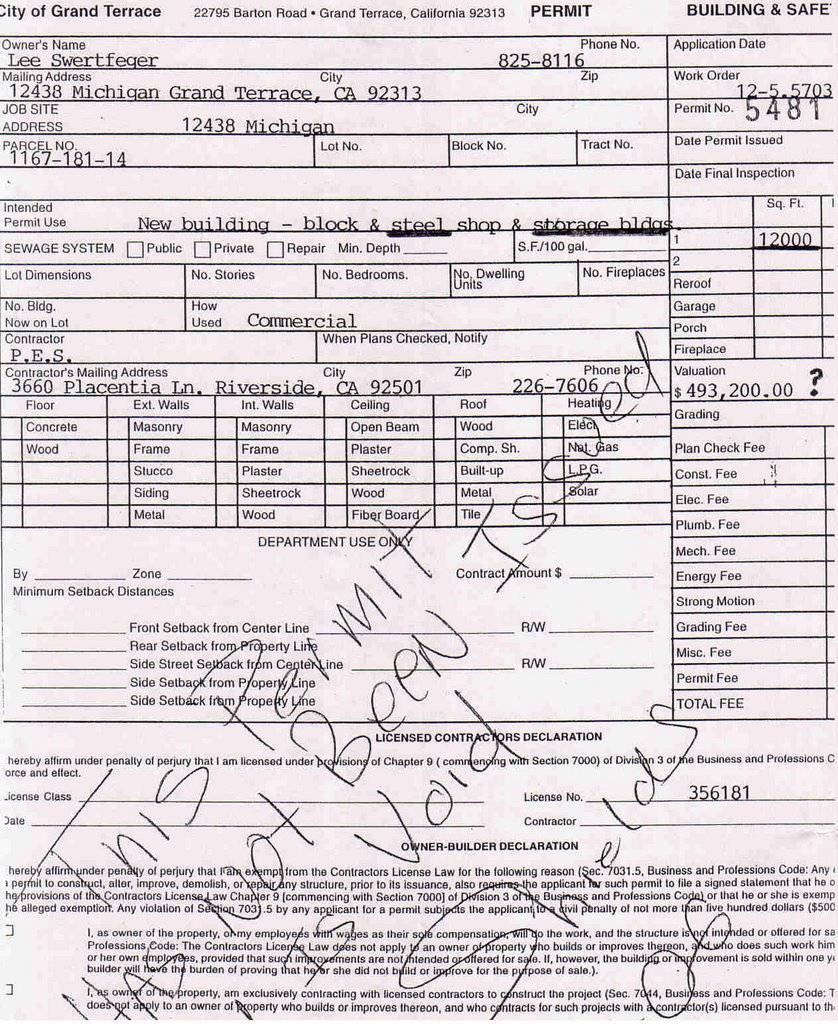 City of Grand Terrace 22795 Barton Road • Grand Terrace, California 92313 PERMIT BUILDING & SAFE
Owner's Name Phone No. Application Date
Lee Swertfeger 825-8116
Mailing Address City Zip Work Order
12438 Michigan Grand Terrace, CA 92313 12-5.5703
JOB SITE City Permit No. 5481
ADDRESS 12438 Michigan
PARCEL NO. Lot No. Block No. Tract No. Date Permit Issued
1167-181-14
Date Final Inspection
Intended Sq. Ft.
Permit Use New building - block & steel shop & storage bldgs.
SEWAGE SYSTEM Public Private Repair Min. Depth S.F./100 gal. 1 12000
2
Lot Dimensions No. Stories No. Bedrooms. No. Dwelling Units No. Fireplaces
Reroof
No. Bldg. How Garage
Now on Lot Used Commercial
Porch
Contractor When Plans Checked, Notify
P.E.S. Fireplace
Contractor's Mailing Address City Zip Phone No. Valuation
3660 Placentia Ln. Riverside, CA 92501 226-7606 $ 493,200.00 ?
Floor Ext. Walls Int. Walls Ceiling Roof Heating Grading
Concrete Masonry Masonry Open Beam Wood Elec.
Wood Frame Frame Plaster Comp. Sh. Nat. Gas Plan Check Fee
Stucco Plaster Sheetrock Built-up L.P.G. Const. Fee
Siding Sheetrock Wood Metal Solar Elec. Fee
Metal Wood Fiber Board Tile Plumb. Fee
DEPARTMENT USE ONLY Mech. Fee
By Zone Contract Amount $ Energy Fee
Minimum Setback Distances
Strong Motion
Front Setback from Center Line R/W Grading Fee
Rear Setback from Property Line Misc. Fee
Side Street Setback from Center Line R/W
Side Setback from Property Line Permit Fee
Side Setback from Property Line TOTAL FEE
LICENSED CONTRACTORS DECLARATION
hereby affirm under penalty of perjury that I am licensed under provisions of Chapter 9 ( commencing with Section 7000) of Division 3 of the Business and Professions C
orce and effect.
License Class License No. 356181
Date Contractor
OWNER-BUILDER DECLARATION
hereby affirm under penalty of perjury that I am exempt from the Contractors License Law for the following reason (Sec. 7031.5, Business and Professions Code: Any
a permit to construct, alter, improve, demolish, or repair any structure, prior to its issuance, also requires the applicant for such permit to file a signed statement that he o
he provisions of the Contractors License Law Chapter 9 [commencing with Section 7000] of Division 3 of the Business and Professions Code) or that he or she is exemp
he alleged exemption. Any violation of Section 7031.5 by any applicant for a permit subjects the applicant to a civil penalty of not more than five hundred dollars ($500
I, as owner of the property, or my employees with wages as their sole compensation, will do the work, and the structure is not intended or offered for sa
Professions Code: The Contractors License Law does not apply to an owner of property who builds or improves thereon, and who does such work him
or her own employees, provided that such improvements are not intended or offered for sale. If, however, the building or improvement is sold within one y
builder will have the burden of proving that he or she did not build or improve for the purpose of sale.).
I, as owner of the property, am exclusively contracting with licensed contractors to construct the project (Sec. 7044, Business and Professions Code: T
does not apply to an owner of property who builds or improves thereon, and who contracts for such projects with a contractor(s) licensed pursuant to th
This Permit
HAS Not Been Issued
Is Void